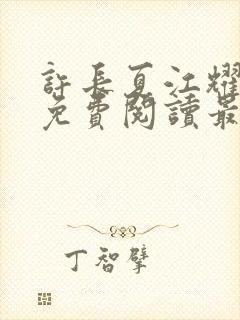 許長夏江耀
免費閱讀最
丁智擘